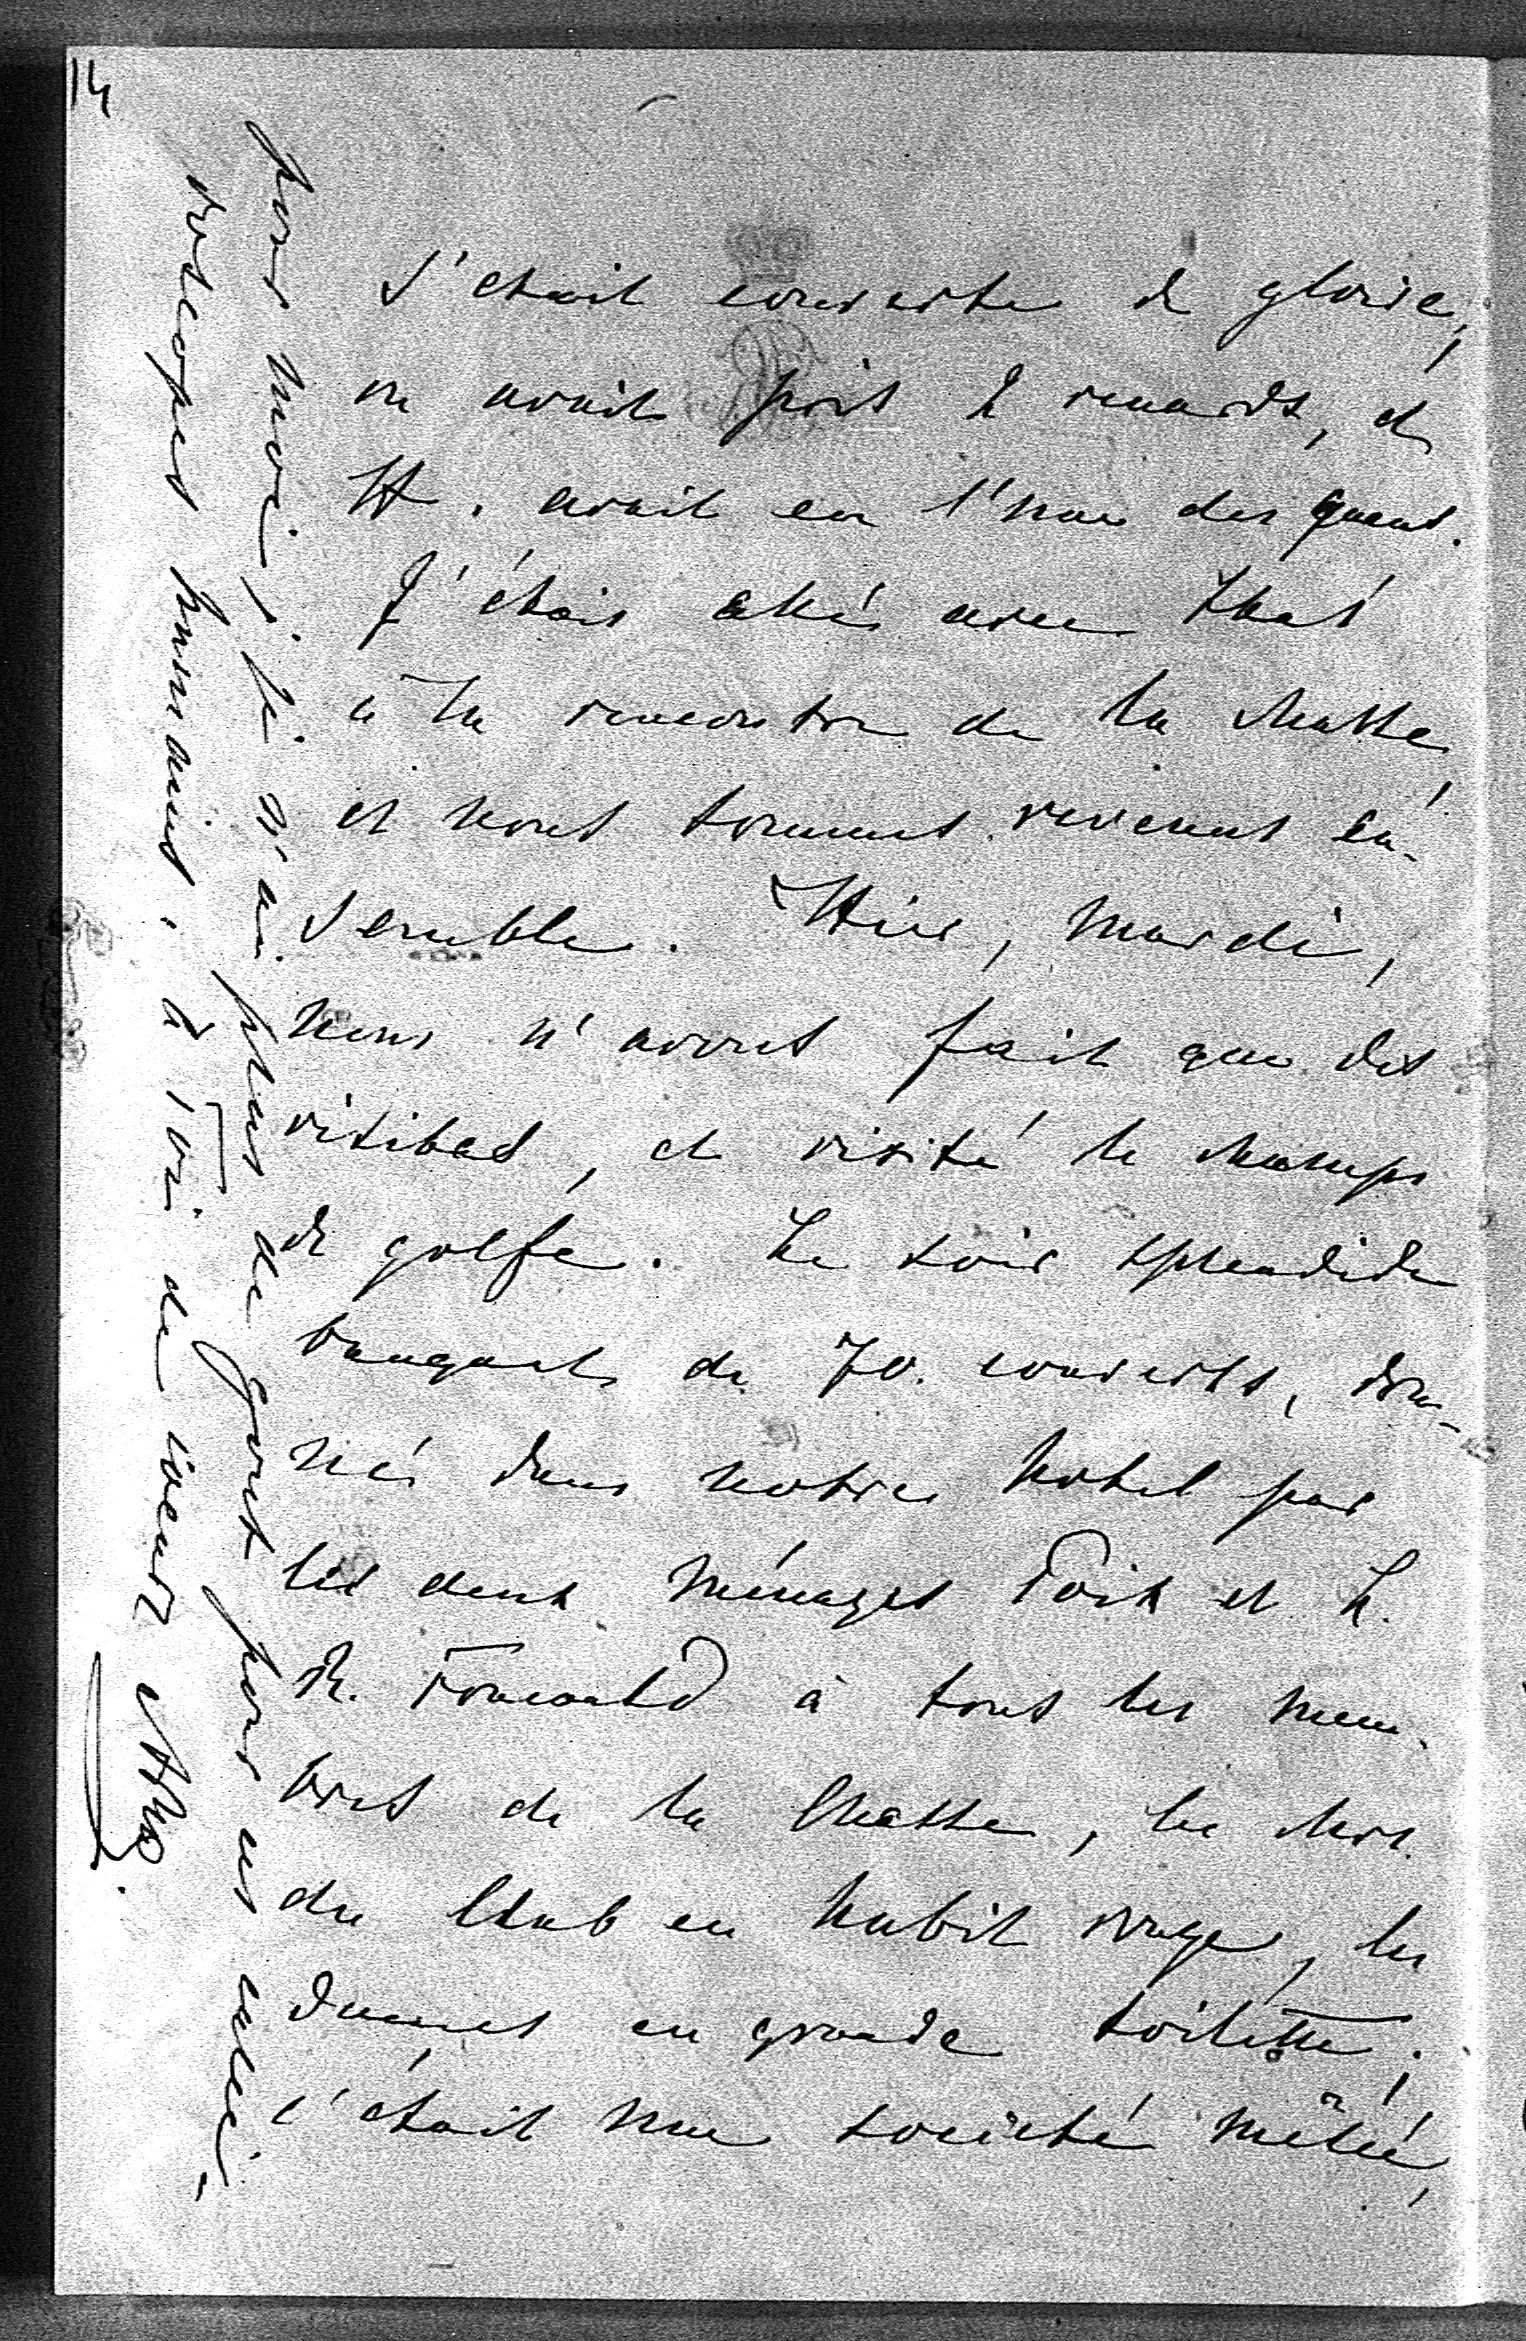 14
s'était couverte de gloire,
on avait pris 2 renards, et
H. avait eu l'une des queues.
J'étais allé avec Thas
à la rencontre de la chasse,
et nous sommes revenus en-
semble. Hier, mardi,
nous n'avons fait que des
visites, et visité le champs
de golfe. Le soir splendide
banquet de 70. couverts, don-
né dans notre hotel par
les deux ménages et L.
R. à tous les mem-
bres de la Chasse, les Mrs.
du Club en habit rouge, les
dames en grande toilette;
c'était une société mêlée,
pour moi; je n'ai plus de goût pour ces kaléi-
doscopes humains; à Toi de coeur